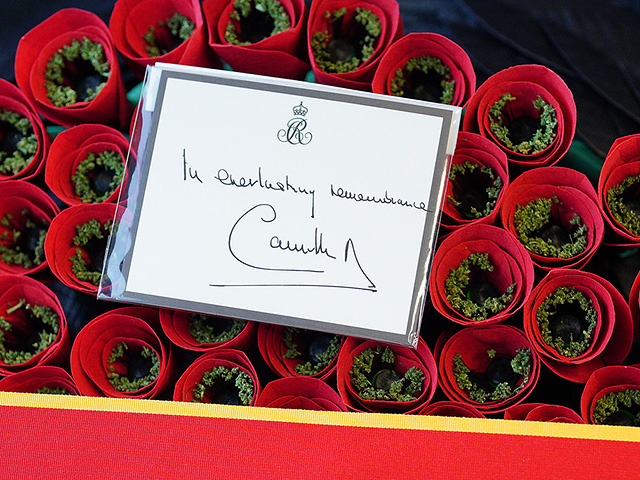 CR
In everlasting remembrance
Camilla R